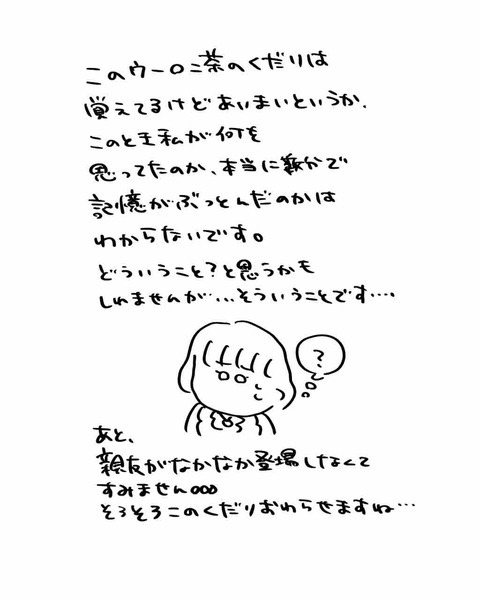 このウーロン茶のくだりは
覚えてるけどあいまいというか、
このとき私が何を
思ってたのか、本当に数分で
記憶がぶっとんだのかは
わからないです。
どういうこと?と思うかも
しれませんが…そういうことです…。
?
あと、
親友がなかなか登場しなくて
すみません。。。
そろそろこのくだりおわらせますね…